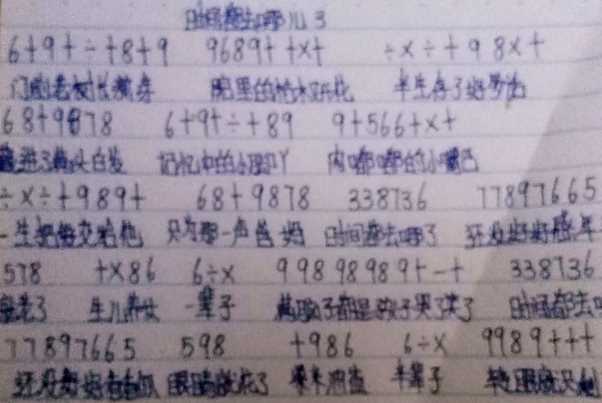 时间都去哪儿了
6+9+÷+8+9 9689++x+ ÷x÷+98x+
门前老树长新芽 院里的枯木又开花 半生存了好多话
68+9878 6+9+÷+89 9+566+x+
藏进了满头白发 记忆中的小脚丫 肉嘟嘟的小嘴巴
÷x÷+989+ 68+9878 338736 77897665
一生把爱交给他 只为那一声爸妈 时间都去哪了 还没好好感 年
578 +x86 6÷x 99898989+-+ 338736
老了 生儿养女 一辈子 满脑子都是孩子哭了笑了 时间都去
77897665 598 +986 6÷x 9989+++
还没好好看看 眼睛就花了 柴米油盐 半辈子 转眼就只剩